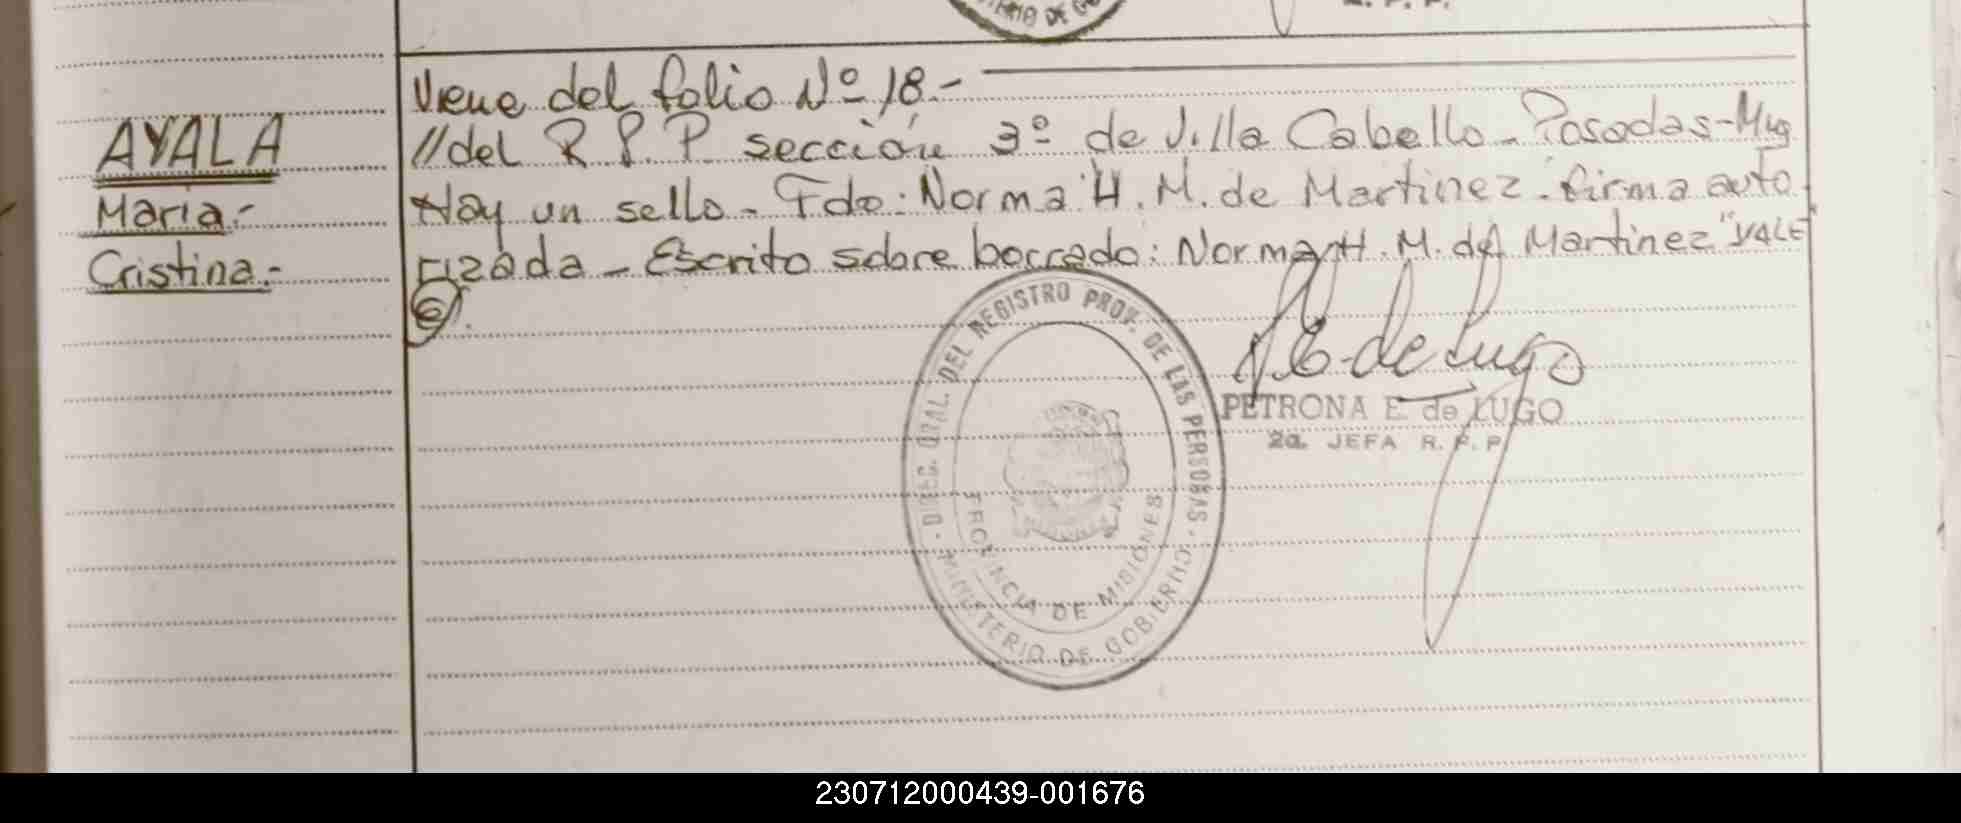 Viene del folio Nº 18.-
AYALA
//del R P. P. sección 3º de Villa Cabello - Posadas - Mnes
Maria.-
Hay un sello - Fdo: Norma H. M. de Martinez. firma auto
Cristina.-
rizada - Escrito sobre borrado: Norma H. M. de Martinez "VALE"
DIREC. GRAL. DEL REGISTRO PROV. DE LAS PERSONAS
MINISTERIO DE GOBIERNO
PROVINCIA DE MISIONES
P. E. de Lugo
PETRONA E. de LUGO
2a. JEFA R. P. P.
230712000439-001676